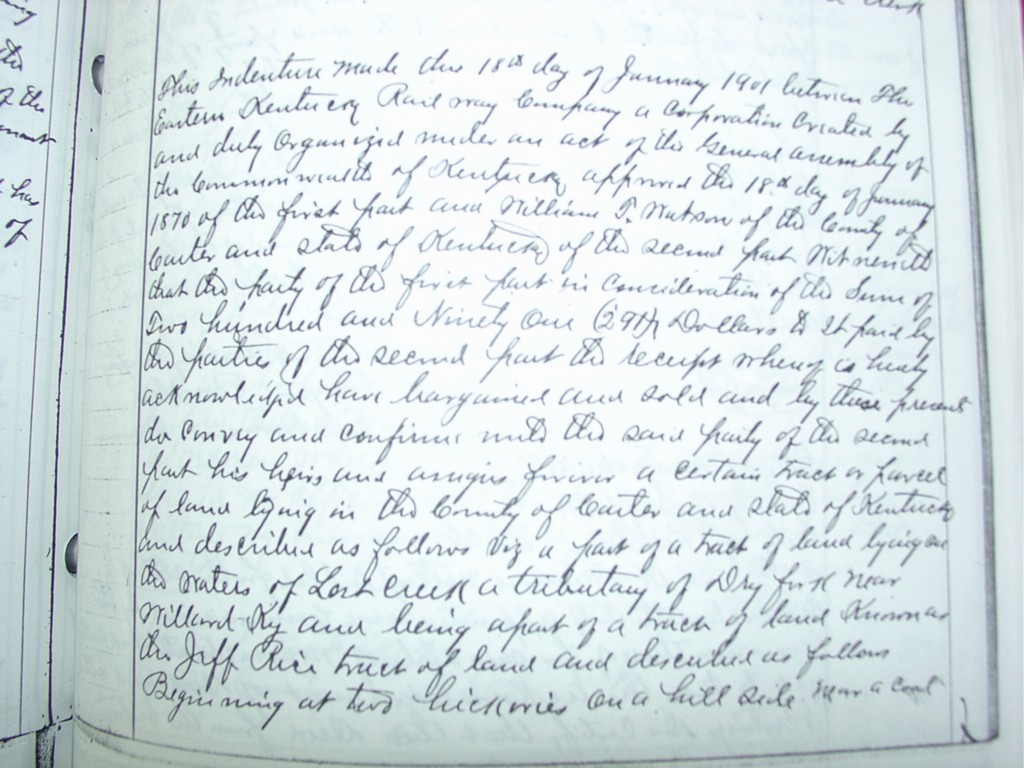 This Indenture made this 18th day of January 1901 between The
Eastern Kentucky Railway Company a Corporation Created by
and duly Organized under an act of the General assembly of
the Commonwealth of Kentucky approved the 18th day of January
1870 of the first part and William T. Watson of the County of
Carter and state of Kentucky of the second part Witnesseth
that the party of the first part in Consideration of the Sum of
Two hundred and Ninety One (291) Dollars to It paid by
the parties of the second part the receipt whereof is hereby
acknowledged have bargained and sold and by these present
do Convey and confirm unto the said party of the second
part his heirs and assigns forever a certain tract or parcel
of land lying in the County of Carter and state of Kentucky
and described as follows viz a part of a tract of land lying on
the waters of Lost Creek a tributary of Dry fork near
Willard Ky and being apart of a tract of land Known as
the Jeff Rice tract of land and described as follows
Beginning at two hickories on a hill side near a coal
of the
has
of